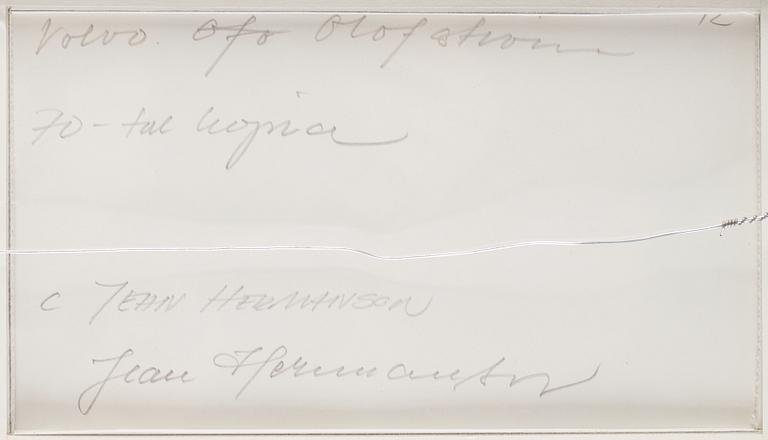 Volvo. Ofo Olofström
70-tal kopia
C JEAN HERMANSON
Jean Hermanson